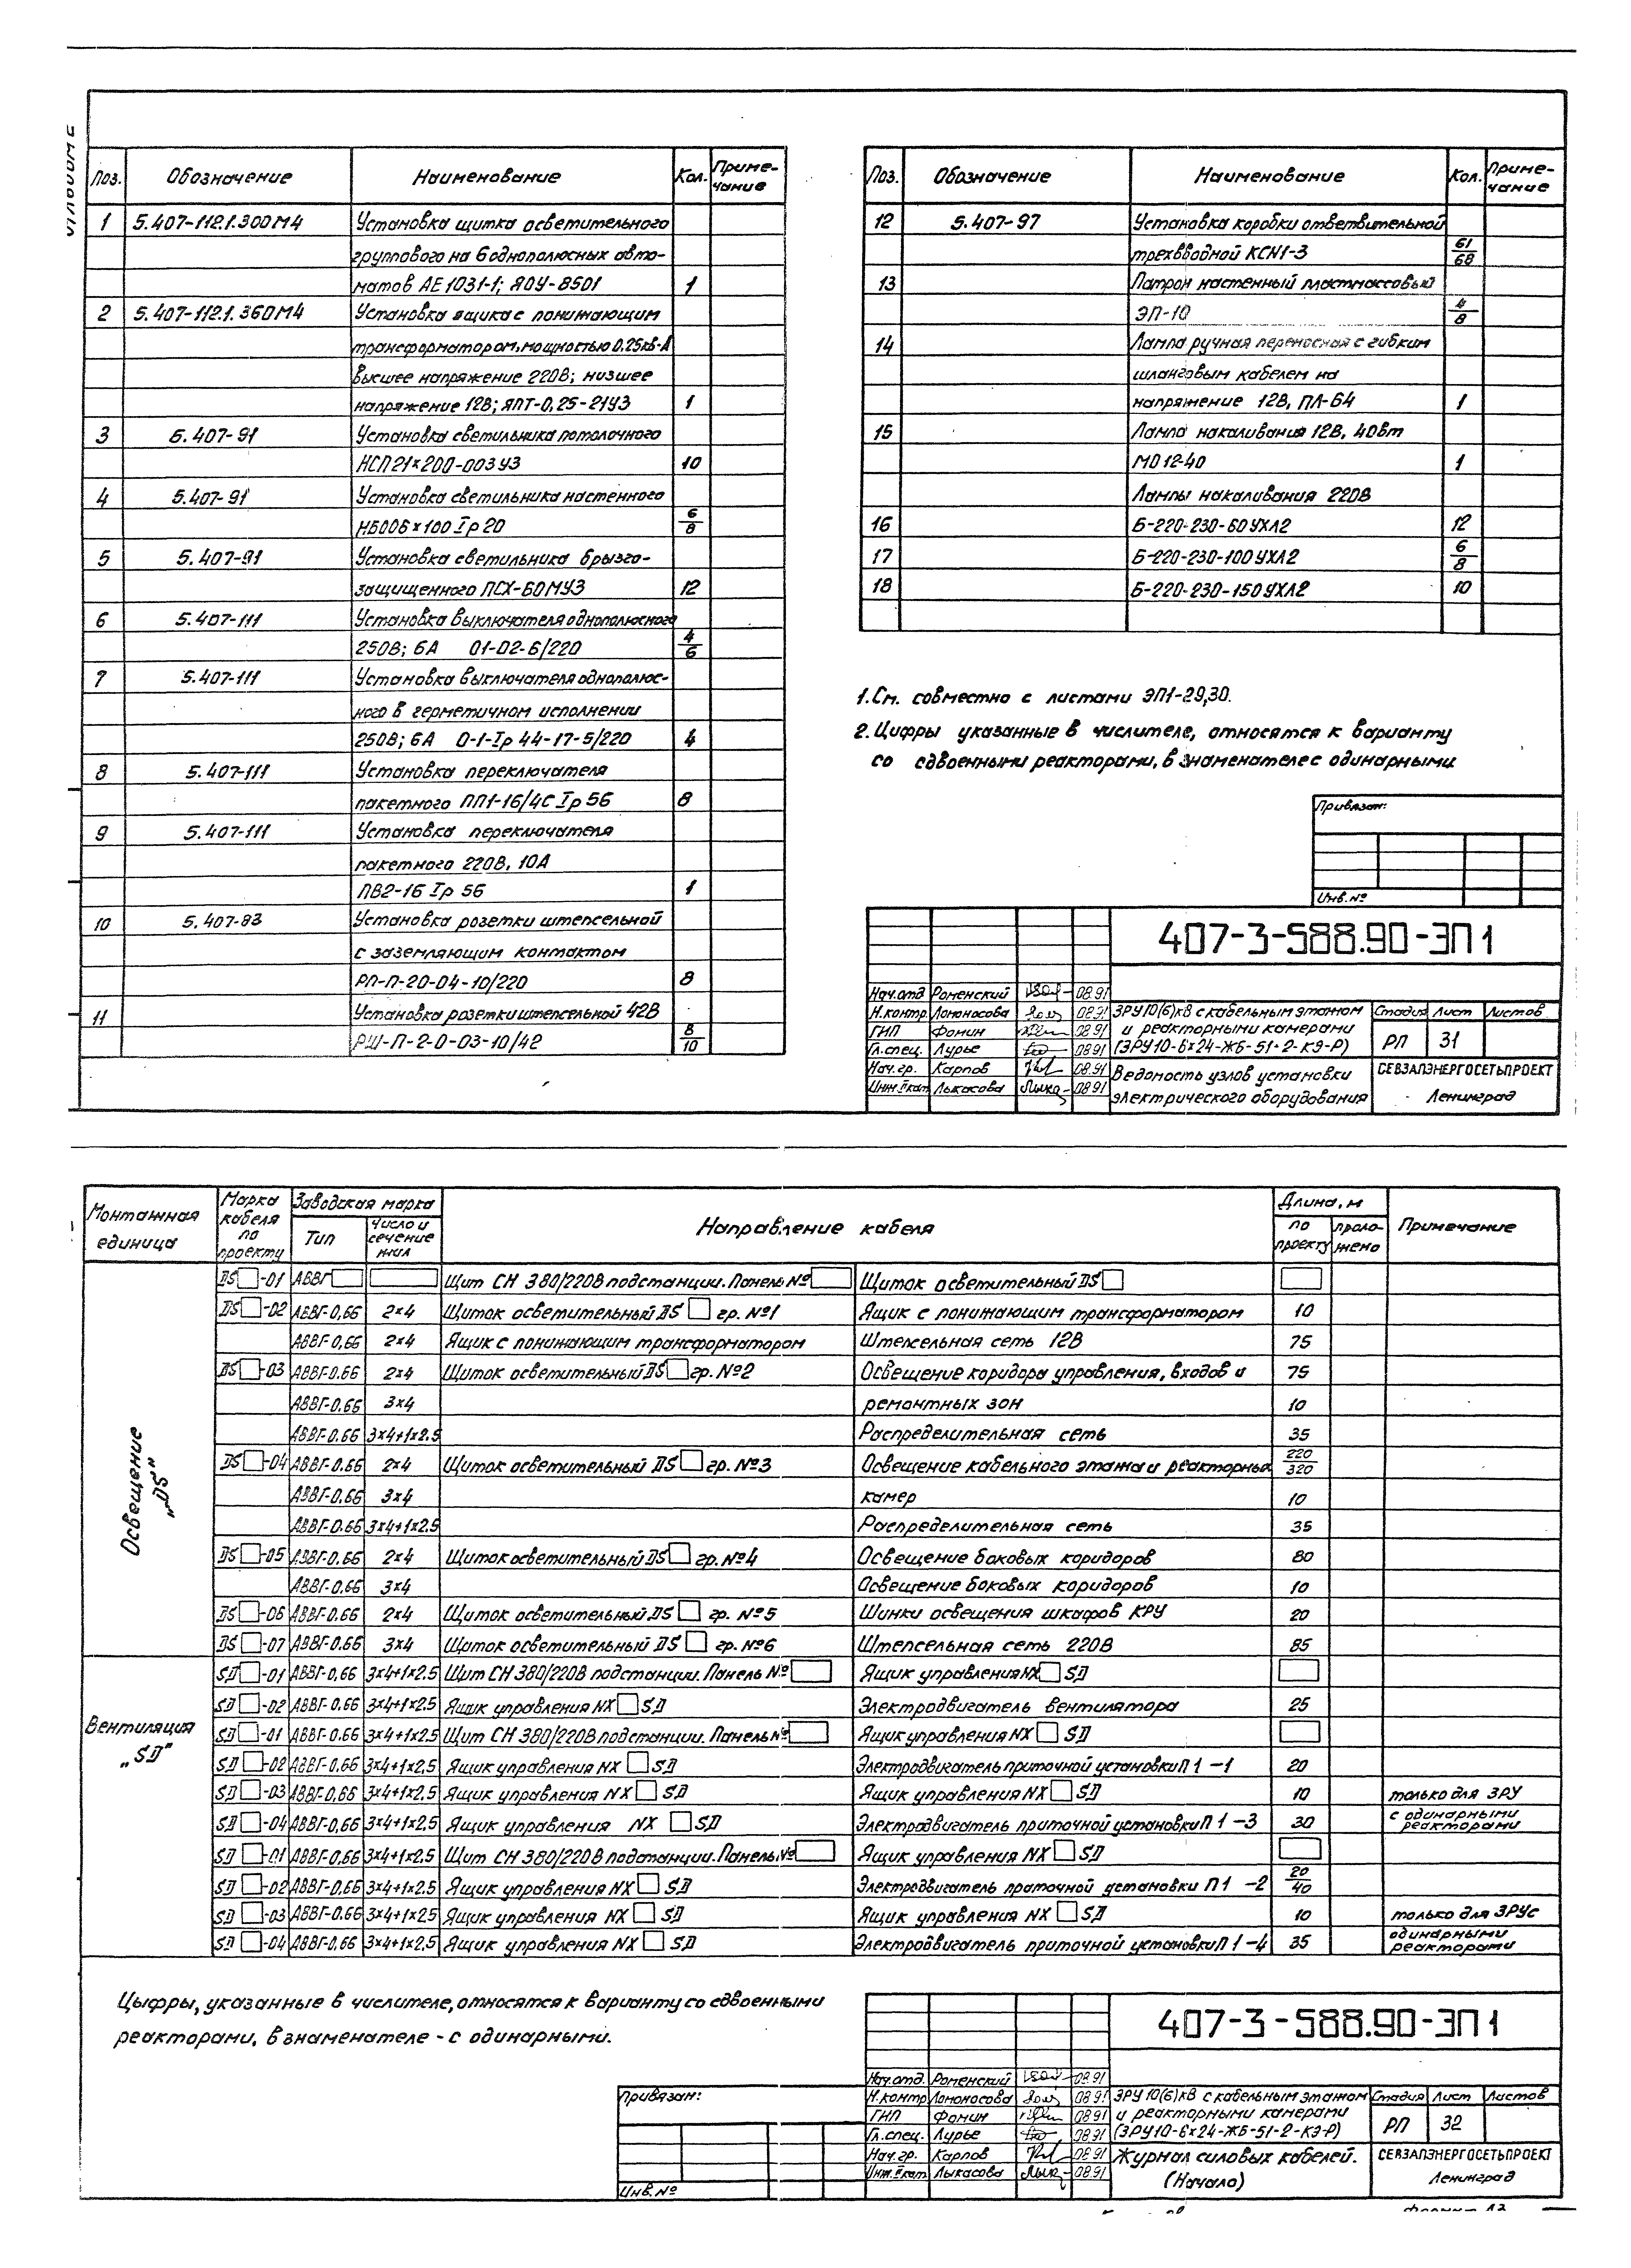 Поз. Обозначение Наименование Кол. Приме-чание
1 5.407-112.1.300М4 Установка щитка осветительного
группового на 6 однополюсных авто-
матов АЕ 1031-1; ЯОУ-8501 1
2 5.407-112.1.360М4 Установка ящика с понижающим
трансформатором, мощностью 0,25кв·А
высшее напряжение 220В; низшее
напряжение 12В; ЯПТ-0,25-21У3 1
3 5.407-91 Установка светильника потолочного
НСП21×200-003У3 10
4 5.407-91 Установка светильника настенного
НБ006×100 Iр20 6/8
5 5.407-91 Установка светильника брызго-
защищенного ПСХ-60МУ3 12
6 5.407-111 Установка выключателя однополюсного
250В; 6А 01-02-6/220 4/6
7 5.407-111 Установка выключателя однополюс-
ного в герметичном исполнении
250В; 6А 0-1-Iр44-17-5/220 4
8 5.407-111 Установка переключателя
пакетного ПП1-16/4С Iр56 8
9 5.407-111 Установка переключателя
пакетного 220В, 10А
ПВ2-16 Iр 56 1
10 5.407-83 Установка розетки штепсельной
с заземляющим контактом
РП-П-20-04-10/220 8
11 Установка розетки штепсельной 42В
РШ-П-2-0-03-10/42 8/10
Поз. Обозначение Наименование Кол. Приме-чание
12 5.407-97 Установка коробки ответвительной
трехвводной КСН1-3 61/68
13 Патрон настенный пластмассовый
ЭП-10 4/8
14 Лампа ручная переносная с гибким
шланговым кабелем на
напряжение 12В, ПЛ-64 1
15 Лампа накаливания 12В, 40вт
МО12-40 1
Лампы накаливания 220В
16 Б-220-230-60УХЛ2 12
17 Б-220-230-100УХЛ2 6/8
18 Б-220-230-150УХЛ2 10
1. См. совместно с листами ЭП1-29,30.
2. Цифры указанные в числителе, относятся к варианту
со сдвоенными реакторами, в знаменателе с одинарными
Привязан:
Инв.№
407-3-588.90-ЭП1
Нач.отд Роменский 08.91
Н.контр. Ломоносова 08.91 ЗРУ10(6)кВ с кабельным этажом Стадия Лист Листов
ГИП Фомин 08.91 и реакторными камерами
Гл.спец. Лурье 08.91 (ЗРУ10-6×24-ЖБ-51-2-КЭ-Р) РП 31
Нач.гр. Карпов 08.91 Ведомость узлов установки СЕВЗАПЭНЕРГОСЕТЬПРОЕКТ
Инж.IIкат Лыкасова 08.91 электрического оборудования Ленинград
Монтажная единица Марка кабеля по проекту Заводская марка Направление кабеля Длина, м Примечание
Тип Число и сечение жил по проекту проложено
Освещение „DS"
DS -01 АВВГ Щит СН 380/220В подстанции. Панель № Щиток осветительный DS
DS -02 АВВГ-0,66 2×4 Щиток осветительный DS гр. №1 Ящик с понижающим трансформатором 10
АВВГ-0,66 2×4 Ящик с понижающим трансформатором Штепсельная сеть 12В 75
DS -03 АВВГ-0.66 2×4 Щиток осветительный DS гр. №2 Освещение коридора управления, входов и 75
АВВГ-0.66 3×4 ремонтных зон 10
АВВГ-0.66 3×4+1×2.5 Распределительная сеть 35
DS -04 АВВГ-0.66 2×4 Щиток осветительный DS гр. №3 Освещение кабельного этажа и реакторных 220/320
АВВГ-0.66 3×4 камер 10
АВВГ-0.66 3×4+1×2.5 Распределительная сеть 35
DS -05 АВВГ-0,66 2×4 Щиток осветительный DS гр. №4 Освещение боковых коридоров 80
АВВГ-0.66 3×4 Освещение боковых коридоров 10
DS -06 АВВГ-0.66 2×4 Щиток осветительный DS гр. №5 Шинки освещения шкафов КРУ 20
DS -07 АВВГ-0.66 3×4 Щиток осветительный DS гр. №6 Штепсельная сеть 220В 85
Вентиляция „SD"
SD -01 АВВГ-0,66 3×4+1×2,5 Щит СН 380/220В подстанции. Панель № Ящик управления NX SD
SD -02 АВВГ-0.66 3×4+1×2,5 Ящик управления NX SD Электродвигатель вентилятора 25
SD -01 АВВГ-0.66 3×4+1×2,5 Щит СН 380/220В подстанции. Панель № Ящик управления NX SD
SD -02 АВВГ-0.66 3×4+1×2,5 Ящик управления NX SD Электродвигатель приточной установки П1 -1 20
SD -03 АВВГ-0,66 3×4+1×2,5 Ящик управления NX SD Ящик управления NX SD 10 только для ЗРУ
SD -04 АВВГ-0,66 3×4+1×2,5 Ящик управления NX SD Электродвигатель приточной установки П1 -3 30 с одинарными реакторами
SD -01 АВВГ-0.66 3×4+1×2,5 Щит СН 380/220В подстанции. Панель № Ящик управления NX SD
SD -02 АВВГ-0.66 3×4+1×2,5 Ящик управления NX SD Электродвигатель приточной установки П1 -2 20/40
SD -03 АВВГ-0.66 3×4+1×2,5 Ящик управления NX SD Ящик управления NX SD 10 только для ЗРУс
SD -04 АВВГ-0,66 3×4+1×2,5 Ящик управления NX SD Электродвигатель приточной установки П1 -4 35 одинарными реакторами
Цыфры, указанные в числителе, относятся к варианту со сдвоенными
реакторами, в знаменателе - с одинарными.
Привязан:
Инв.№
407-3-588.90-ЭП1
Нач.отд. Роменский 08.91
Н.контр Ломоносова 08.91 ЗРУ10(6)кВ с кабельным этажом Стадия Лист Листов
ГИП Фомин 08.91 и реакторными камерами
Гл.спец. Лурье 08.91 (ЗРУ10-6×24-ЖБ-51-2-КЭ-Р) РП 32
Нач.гр. Карпов 08.91 Журнал силовых кабелей. СЕВЗАПЭНЕРГОСЕТЬПРОЕКТ
Инж.IIкат Лыкасова 08.91 (Начало) Ленинград